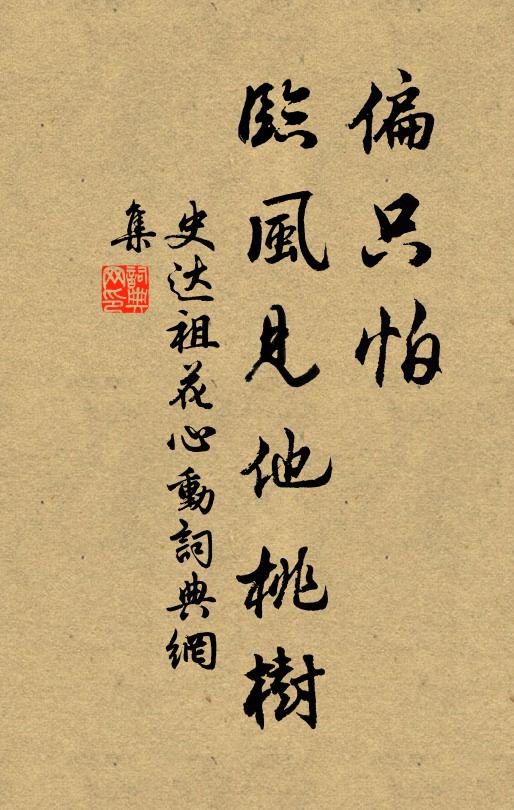 偏只怕
臨風見他桃樹
史达祖花心動詞典網
集
詞典
网印